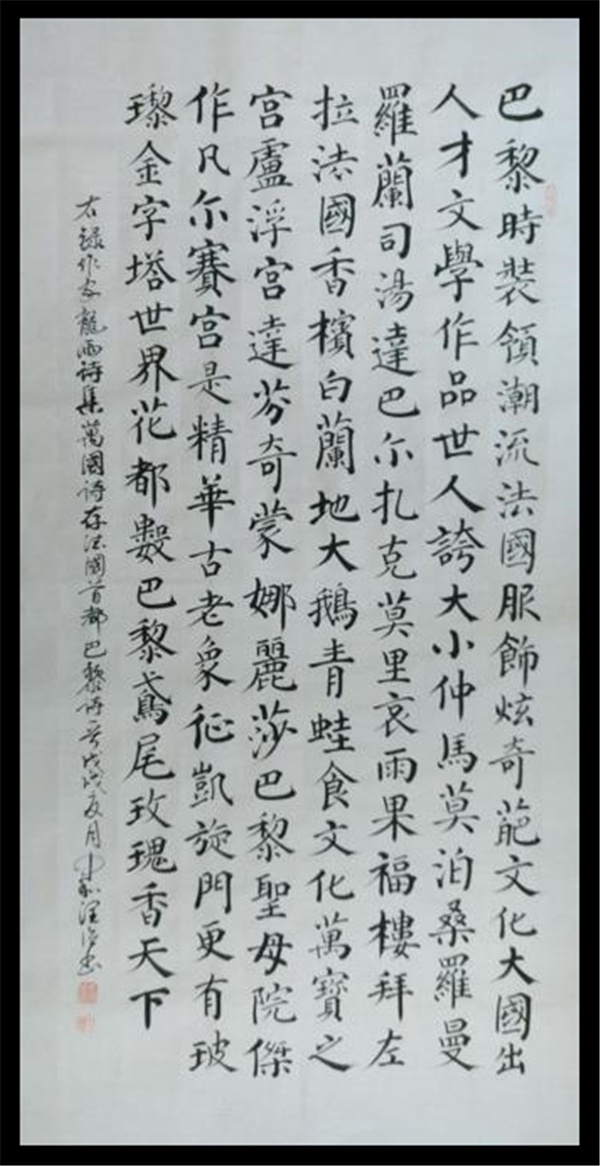 巴黎時裝領潮流法國服飾炫奇葩文化大國出
人才文學作品世人誇大小仲馬莫泊桑羅曼
羅蘭司湯達巴尔扎克莫里哀雨果福樓拜左
拉法國香檳白蘭地大鵝青蛙食文化萬寶之
宮盧浮宮達芬奇蒙娜麗莎巴黎聖母院傑
作凡尔賽宮是精華古老象征凱旋門更有玻
瓈金字塔世界花都數巴黎鳶尾玫瑰香天下
右錄作家龍雨詩集萬國詩存法國首都巴黎詩一首戊戌夏月